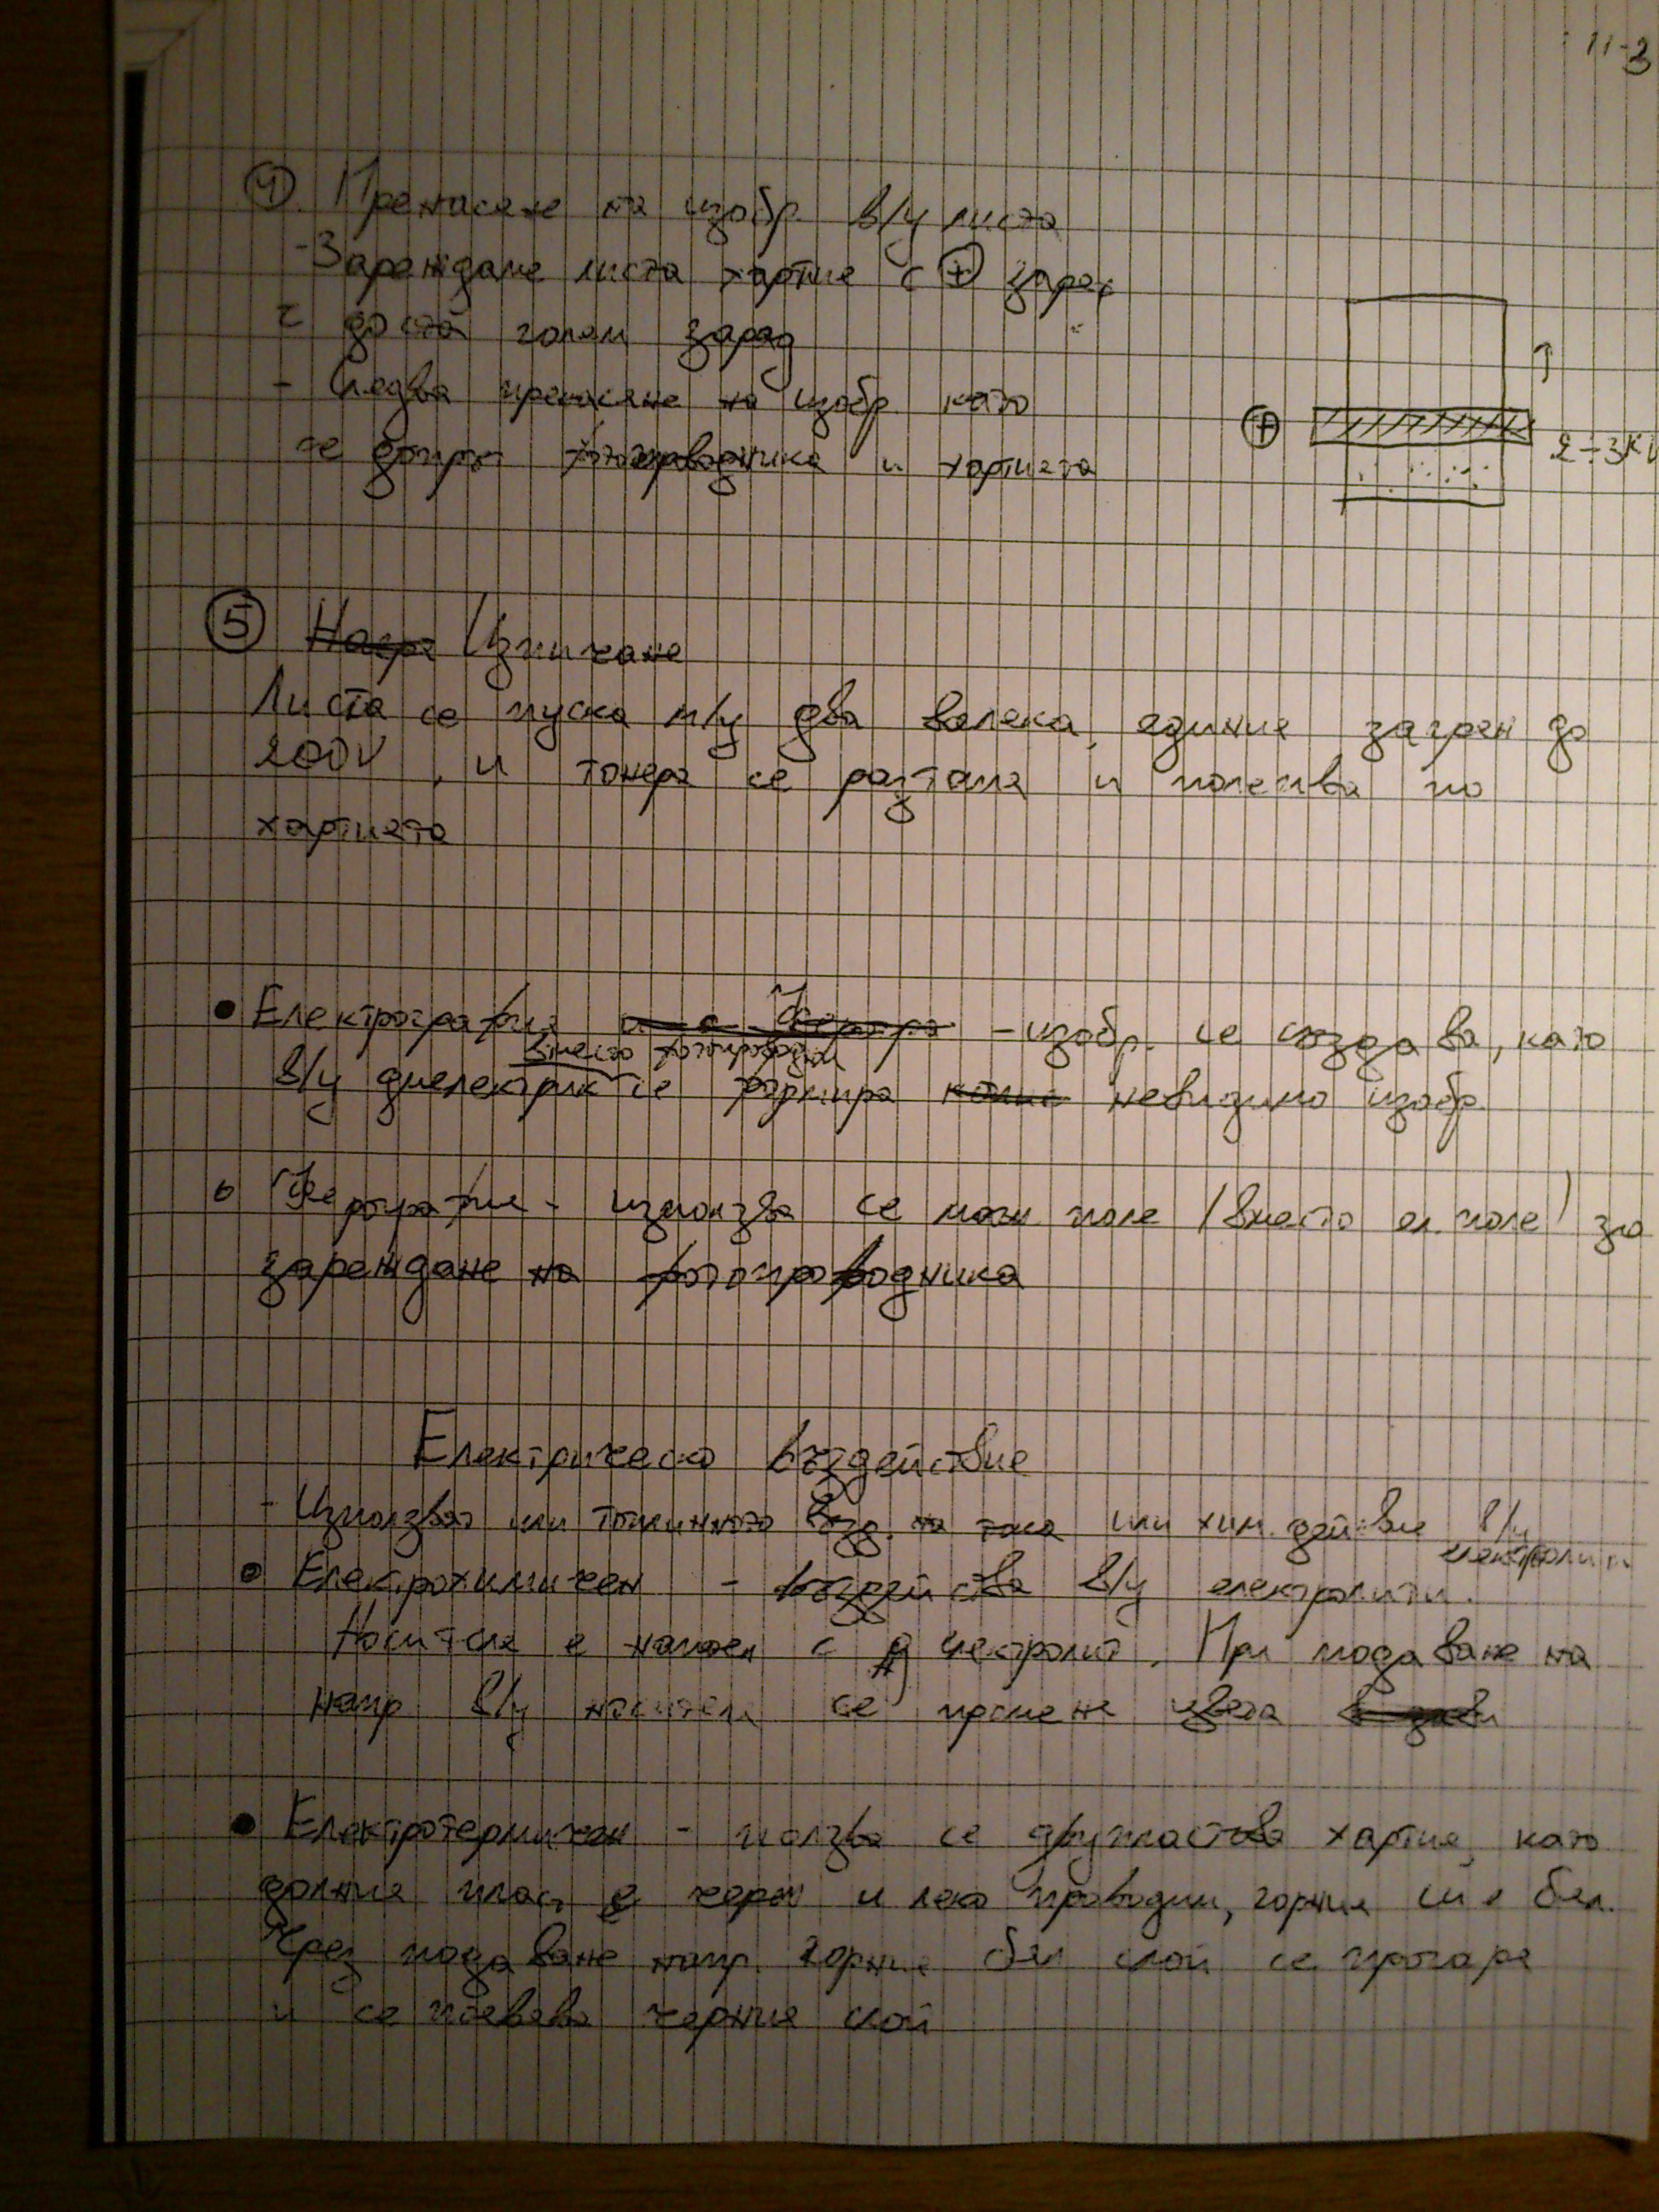 11-3
④ Пренасяне на изобр. в/у листа
- Зареждаме листа хартие с ⊕ заряд
с доста голям заряд
- Следва пренасяне на изобр. като
се допрат фотопроводника и хартиета
⊕ 2÷3KV
⑤ Изпичане
Листа се пуска м/у два валека, единие загрен до
200V, и тонера се разтапя и полепва по
хартиета
• Електрография - изобр. се създава, като
вместо фотопроводник
в/у диелектрик се формира невидимо изобр.
• Ферография - използва се магн поле (вместо ел. поле) за
зареждане на фотопроводника
Електрическо въздействие
- Използват или топлинното възд. на тока или хим. действие в/у
електролити
• Електрохимичен - въздейства в/у електролити.
Носителя е напоен с електролит. При подаване на
напр в/у носителя се променя цвета
• Електротермичен - ползва се двупластова хартие, като
долние пласт е черен и леко проводим, горние е бял.
Чрез подаване напр. горние бял слой се прогаря
и се появява черние слой